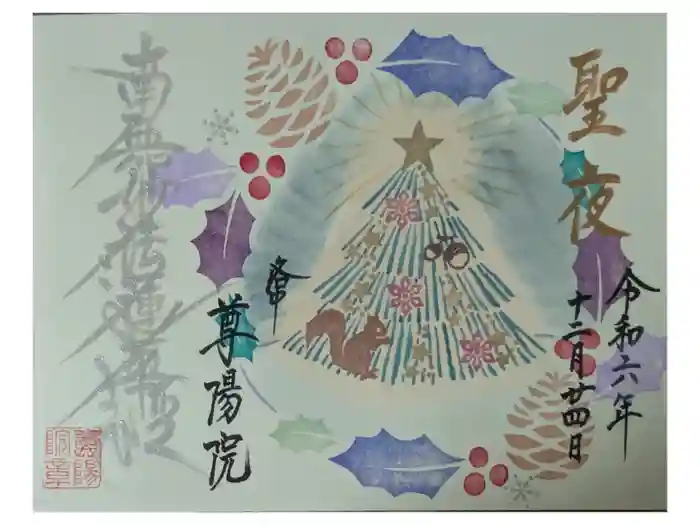 聖夜
令和六年
十二月廿四日
尊陽院
南無妙法蓮華経